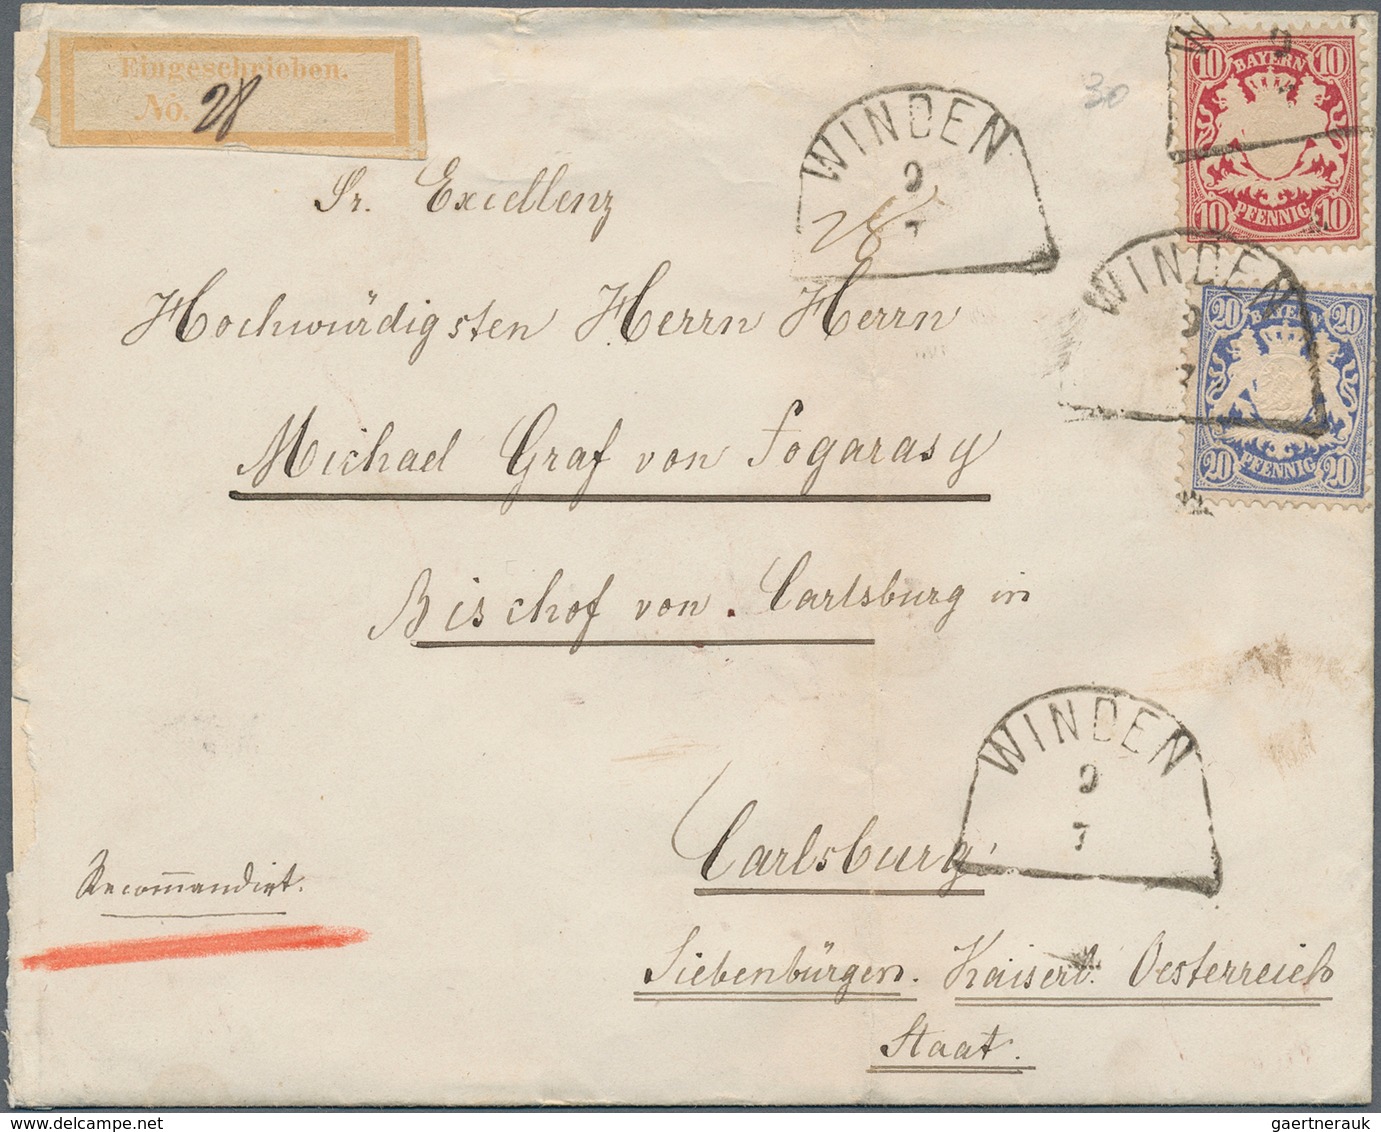 Eingeschrieben.
No. 28
30
WINDEN
9
7
28
WINDEN
9
7
WINDEN
9
7
10 BAYERN 10
10 PFENNIG 10
20 BAYERN 20
20 PFENNIG 20
Sr. Excellenz
Hochwürdigsten Herrn Herrn
Michael Graf von Fogarasy
Bischof von Carlsburg in
Carlsburg
Recom̅andirt.
Siebenbürgen. Kaiserl. Oesterreich
Staat.
gaertnerauk